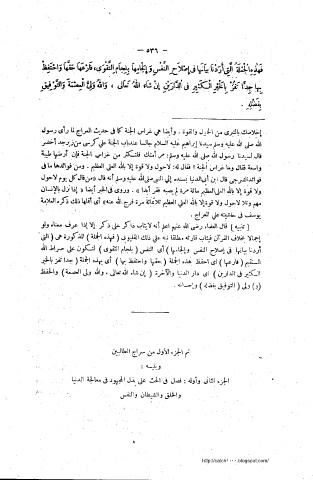 — ٥٣٦ —
فهذه الجملة التي أردنا بيانها في إصلاح النفس وإلجامها بلجام التقوى، فارعها حقها واحتفظ
بها جدا تفز بالخير الكثير في الدارين إن شاء الله تعالى، والله ولي العصمة والتوفيق
بفضله.
إخلاصك بالتبرى من الحول والقوة. وأيضا هي غراس الجنة كما في حديث المعراج لما رأى رسول
الله صلى الله عليه وسلم سيدنا إبراهيم عليه السلام جالسا عند باب الجنة على كرسي من زبرجد أخضر
قال لسيدنا رسول الله صلى الله عليه وسلم: مر أمتك فلتكثر من غراس الجنة فإن أرضها طيبة
واسعة فقال وما غراس الجنة؟ فقال له: لاحول ولا قوة إلا بالله العلي العظيم. ومن فوائدها ما في
عن ابن أبي الدنيا بسنده إلى النبي صلى الله عليه وسلم أنه قال «من قال كل يوم لاحول
ولا قوة إلا بالله العلي العظيم مائة مرة لم يصبه فقر أبدا». وروى في الخبر أيضا «إذا نزل بالإنسان
مهم وتلا لاحول ولا قوة إلا بالله العلي العظيم ثلاثمائة مرة فرج الله عنه» أي أقلها ذلك ذكره العلامة
يوسف في حاشيته على المعراج.
(تنبيه) قال رضي الله عنهم اعلم أنه لايثاب ذاكر على ذكر إلا إذا عرف معناه ولو
إجمالا بخلاف القرآن فيثاب قارئه مطلقا نبه على ذلك القليوبي (فهذه الجملة) المذكورة هي (التي
أردنا بيانها في إصلاح النفس وإلجامها) أي النفس (بلجام التقوى) لتكون على صراط الله
المستقيم (فارعها) أي احفظ هذه الجملة (حقها واحتفظ بها) أي بهذه الجملة (جدا تفز بالخير
الكثير في الدارين) أي دار الدنيا والآخرة (إن شاء الله تعالى، والله ولي العصمة) والحفظ
(و) ولى (التوفيق بفضله) وإحسانه.
تم الجزء الأول من سراج الطالبين
ويليه:
الجزء الثاني وأوله: فصل في الحث على بذل المجهود في معالجة الدنيا
والخلق والشيطان والنفس